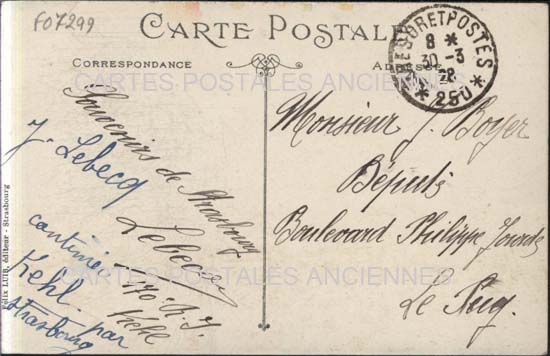 F07299
CARTE POSTALE
CORRESPONDANCE
TRESOR ET POSTES
8 *
30-3
* 250 *
CARTES POSTALES ANCIENNES
Souvenirs de Strasbourg
Lebecq
170e R.I.
Kehl
J. Lebecq
cantine
Kehl par
Strasbourg
Monsieur J. Boyer
Député
Boulevard Philippe Jourde
Le Puy.
CARTES POSTALES ANCIENNES
Félix LUIB, éditeur - Strasbourg